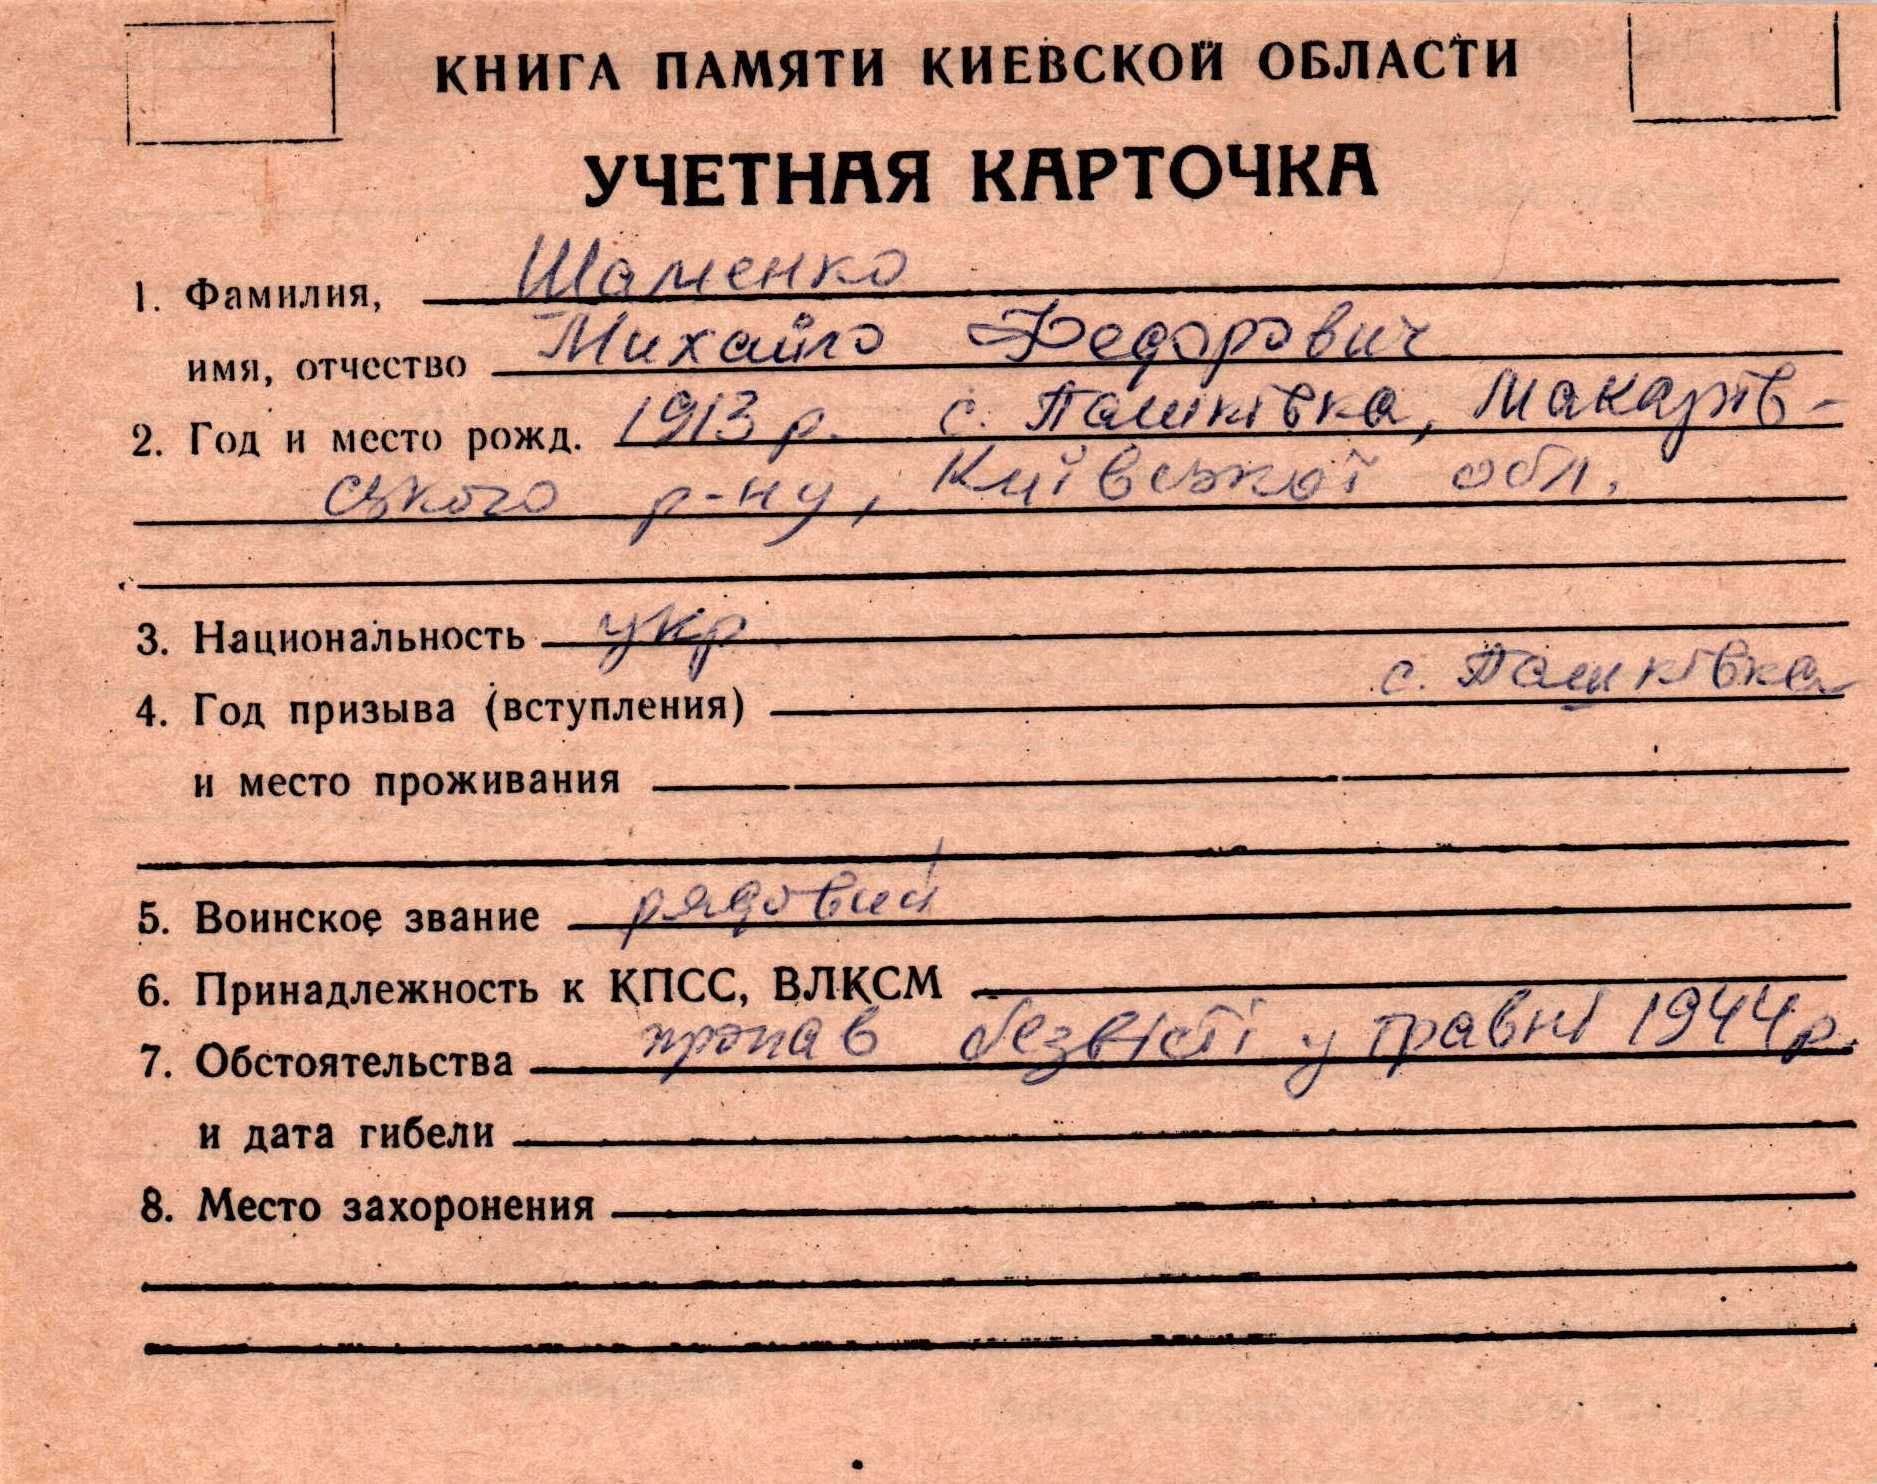 КНИГА ПАМЯТИ КИЕВСКОЙ ОБЛАСТИ
УЧЕТНАЯ КАРТОЧКА
1. Фамилия, Шаменко
имя, отчество Михайло Федорович
2. Год и место рожд. 1913 р. с. Пашківка, Макарів-
ського р-ну, Київської обл.
3. Национальность укр
4. Год призыва (вступления) с. Пашківка
и место проживания
5. Воинское звание рядовий
6. Принадлежность к КПСС, ВЛКСМ
7. Обстоятельства пропав безвісті у травні 1944 р.
и дата гибели
8. Место захоронения